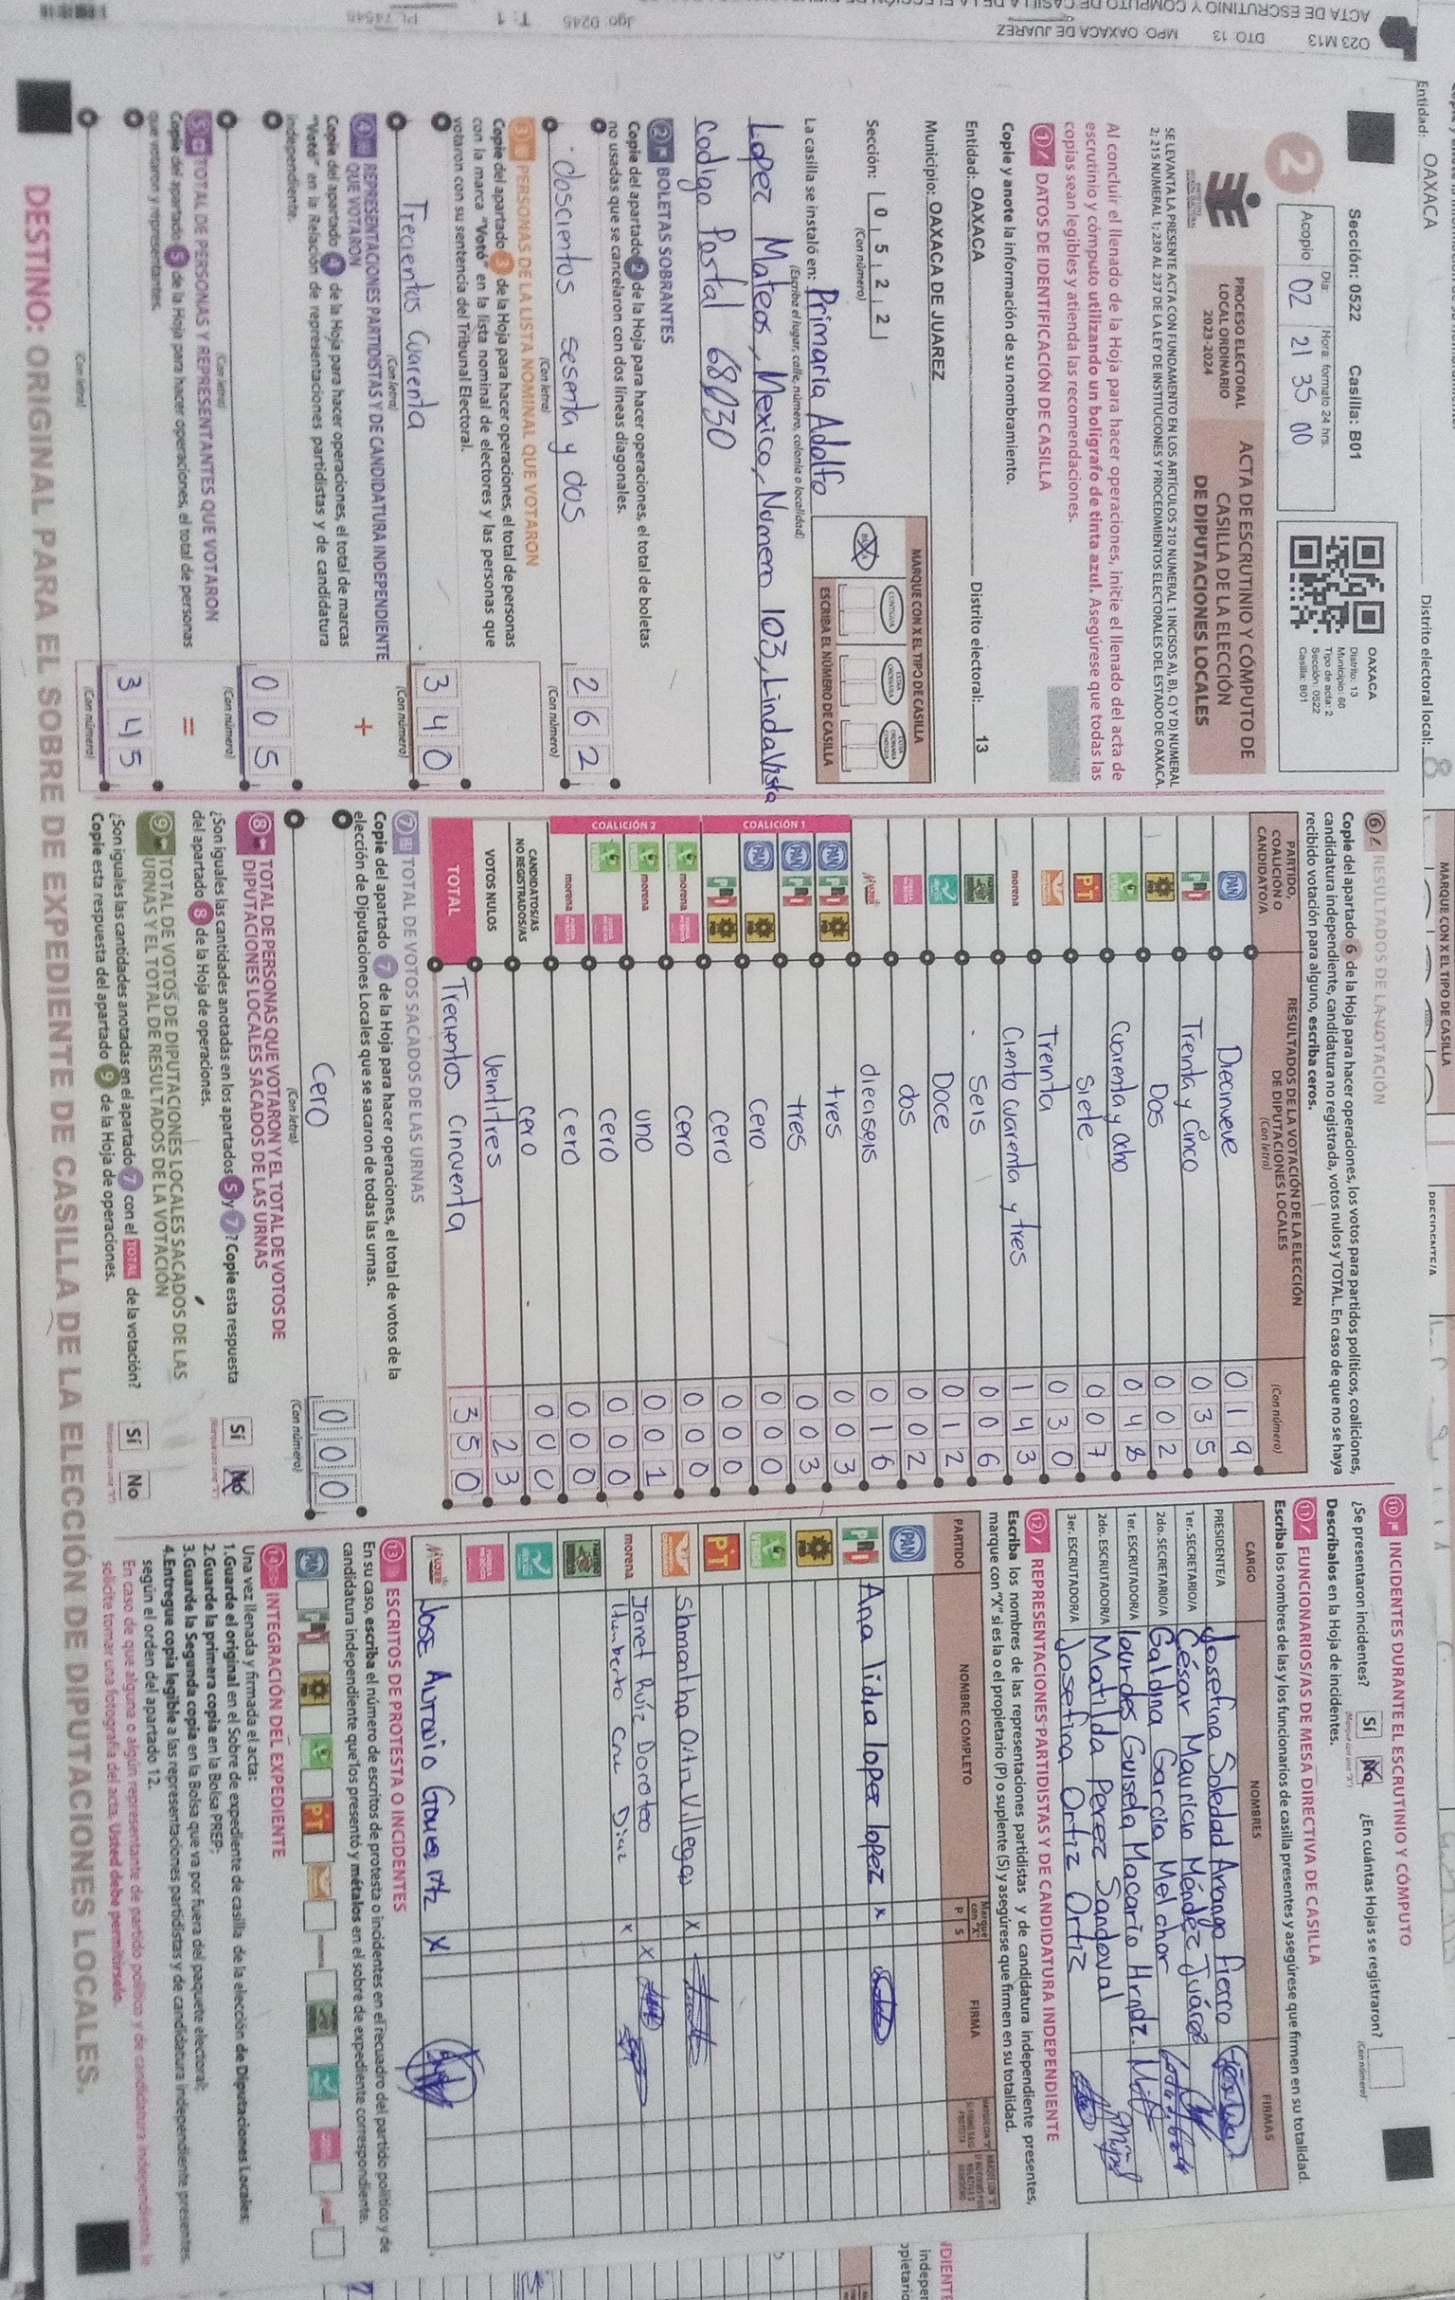 Sección: 0522 Casilla: B01
2
Acopio
Día: 02
Hora: formato 24 hrs. 21 35 00
OAXACA
Distrito: 13
Municipio: 68
Tipo de acta: 2
Sección: 0522
Casilla: B01
PROCESO ELECTORAL
LOCAL ORDINARIO
2023-2024
ACTA DE ESCRUTINIO Y CÓMPUTO DE
CASILLA DE LA ELECCIÓN
DE DIPUTACIONES LOCALES
SE LEVANTA LA PRESENTE ACTA CON FUNDAMENTO EN LOS ARTÍCULOS 210 NUMERAL 1 INCISOS A), B), C) Y D) NUMERAL
2; 215 NUMERAL 1; 230 AL 237 DE LA LEY DE INSTITUCIONES Y PROCEDIMIENTOS ELECTORALES DEL ESTADO DE OAXACA.
Al concluir el llenado de la Hoja para hacer operaciones, inicie el llenado del acta de
escrutinio y cómputo utilizando un bolígrafo de tinta azul. Asegúrese que todas las
copias sean legibles y atienda las recomendaciones.
1 DATOS DE IDENTIFICACIÓN DE CASILLA
Copie y anote la información de su nombramiento.
Entidad: OAXACA Distrito electoral: 13
Municipio: OAXACA DE JUAREZ
Sección: 0 5 2 2
(Con número)
MARQUE CON X EL TIPO DE CASILLA
ESCRIBA EL NÚMERO DE CASILLA
La casilla se instaló en: Primaria Adolfo
(Escriba el lugar, calle, número, colonia o localidad)
Lopez Mateos, Mexico, Numero 103, Linda Vista
Codigo Postal 68030
2 BOLETAS SOBRANTES
Copie del apartado 2 de la Hoja para hacer operaciones, el total de boletas
no usadas que se cancelaron con dos líneas diagonales.
doscientos sesenta y dos 2 6 2
(Con letra) (Con número)
3 PERSONAS DE LA LISTA NOMINAL QUE VOTARON
Copie del apartado 3 de la Hoja para hacer operaciones, el total de personas
con la marca "Votó" en la lista nominal de electores y las personas que
votaron con su sentencia del Tribunal Electoral.
Trecientos Cuarenta 3 4 0
(Con letra) (Con número)
4 REPRESENTACIONES PARTIDISTAS Y DE CANDIDATURA INDEPENDIENTE
QUE VOTARON
+
Copie del apartado 4 de la Hoja para hacer operaciones, el total de marcas
"Votó" en la Relación de representaciones partidistas y de candidatura
independiente.
0 0 5
(Con letra) (Con número)
5 TOTAL DE PERSONAS Y REPRESENTANTES QUE VOTARON
=
Copie del apartado 5 de la Hoja para hacer operaciones, el total de personas
que votaron y representantes.
3 4 5
(Con letra) (Con número)
6 RESULTADOS DE LA VOTACIÓN
Copie del apartado 6 de la Hoja para hacer operaciones, los votos para partidos políticos, coaliciones,
candidatura independiente, candidatura no registrada, votos nulos y TOTAL. En caso de que no se haya
recibido votación para alguno, escriba ceros.
PARTIDO,
COALICIÓN O
CANDIDATO/A
RESULTADOS DE LA VOTACIÓN DE LA ELECCIÓN
DE DIPUTACIONES LOCALES
(Con letra)
(Con número)
PAN Diecinueve 0 1 9
PRI Treinta y Cinco 0 3 5
Dos 0 0 2
Cuarenta y ocho 0 4 8
PT Siete 0 0 7
Treinta 0 3 0
morena Ciento cuarenta y tres 1 4 3
Seis 0 0 6
Doce 0 1 2
dos 0 0 2
dieciseis 0 1 6
COALICIÓN 1
PAN PRI tres 0 0 3
PAN PRI tres 0 0 3
PAN cero 0 0 0
PRI cero 0 0 0
COALICIÓN 2
morena cero 0 0 0
morena uno 0 0 1
cero 0 0 0
morena cero 0 0 0
CANDIDATOS/AS
NO REGISTRADOS/AS
cero 0 0 0
VOTOS NULOS Veintitres 2 3
TOTAL Trecientos cincuenta 3 5 0
7 TOTAL DE VOTOS SACADOS DE LAS URNAS
Copie del apartado 7 de la Hoja para hacer operaciones, el total de votos de la
elección de Diputaciones Locales que se sacaron de todas las urnas.
Cero 0 0 0
(Con letra) (Con número)
8 TOTAL DE PERSONAS QUE VOTARON Y EL TOTAL DE VOTOS DE
DIPUTACIONES LOCALES SACADOS DE LAS URNAS
¿Son iguales las cantidades anotadas en los apartados 5 y 7? Copie esta respuesta
del apartado 8 de la Hoja de operaciones.
Sí No
9 TOTAL DE VOTOS DE DIPUTACIONES LOCALES SACADOS DE LAS
URNAS Y EL TOTAL DE RESULTADOS DE LA VOTACIÓN
¿Son iguales las cantidades anotadas en el apartado 7 con el TOTAL de la votación?
Copie esta respuesta del apartado 9 de la Hoja de operaciones.
Sí No
10 INCIDENTES DURANTE EL ESCRUTINIO Y CÓMPUTO
¿Se presentaron incidentes? Sí No ¿En cuántas Hojas se registraron?
(Con número)
Descríbalos en la Hoja de incidentes.
11 FUNCIONARIOS/AS DE MESA DIRECTIVA DE CASILLA
Escriba los nombres de las y los funcionarios de casilla presentes y asegúrese que firmen en su totalidad.
CARGO NOMBRES FIRMAS
PRESIDENTE/A Josefina Soledad Arrango Fierro
1er. SECRETARIO/A César Mauricio Méndez Juárez
2do. SECRETARIO/A Galdina Garcia Melchor
1er. ESCRUTADOR/A Lourdes Guisela Macario Hrndz
2do. ESCRUTADOR/A Matilda Perez Sandoval
3er. ESCRUTADOR/A Josefina Ortiz Ortiz
12 REPRESENTACIONES PARTIDISTAS Y DE CANDIDATURA INDEPENDIENTE
Escriba los nombres de las representaciones partidistas y de candidatura independiente presentes,
marque con "X" si es la o el propietario (P) o suplente (S) y asegúrese que firmen en su totalidad.
PARTIDO NOMBRE COMPLETO P S FIRMA
PAN
PRI Ana lidia lopez lopez x
PT
Sbmantha Ortiz Villegas X
morena Janet Ruíz Doroteo X
Humberto Cru Diaz x
JOSE ANTONIO X
13 ESCRITOS DE PROTESTA O INCIDENTES
En su caso, escriba el número de escritos de protesta o incidentes en el recuadro del partido político y de
candidatura independiente que los presentó y métalos en el sobre de expediente correspondiente.
14 INTEGRACIÓN DEL EXPEDIENTE
Una vez llenada y firmada el acta:
1.Guarde el original en el Sobre de expediente de casilla de la elección de Diputaciones Locales;
2.Guarde la primera copia en la Bolsa PREP;
3.Guarde la Segunda copia en la Bolsa que va por fuera del paquete electoral;
4.Entregue copia legible a las representaciones partidistas y de candidatura independiente presentes,
según el orden del apartado 12.
En caso de que alguna o algún representante de partido político y de candidatura independiente, le
solicite tomar una fotografía del acta, Usted debe permitírselo.
DESTINO: ORIGINAL PARA EL SOBRE DE EXPEDIENTE DE CASILLA DE LA ELECCIÓN DE DIPUTACIONES LOCALES.
Entidad: OAXACA Distrito electoral local:
MARQUE CON X EL TIPO DE CASILLA
023 M13 DTO 13 MPO: OAXACA DE JUAREZ